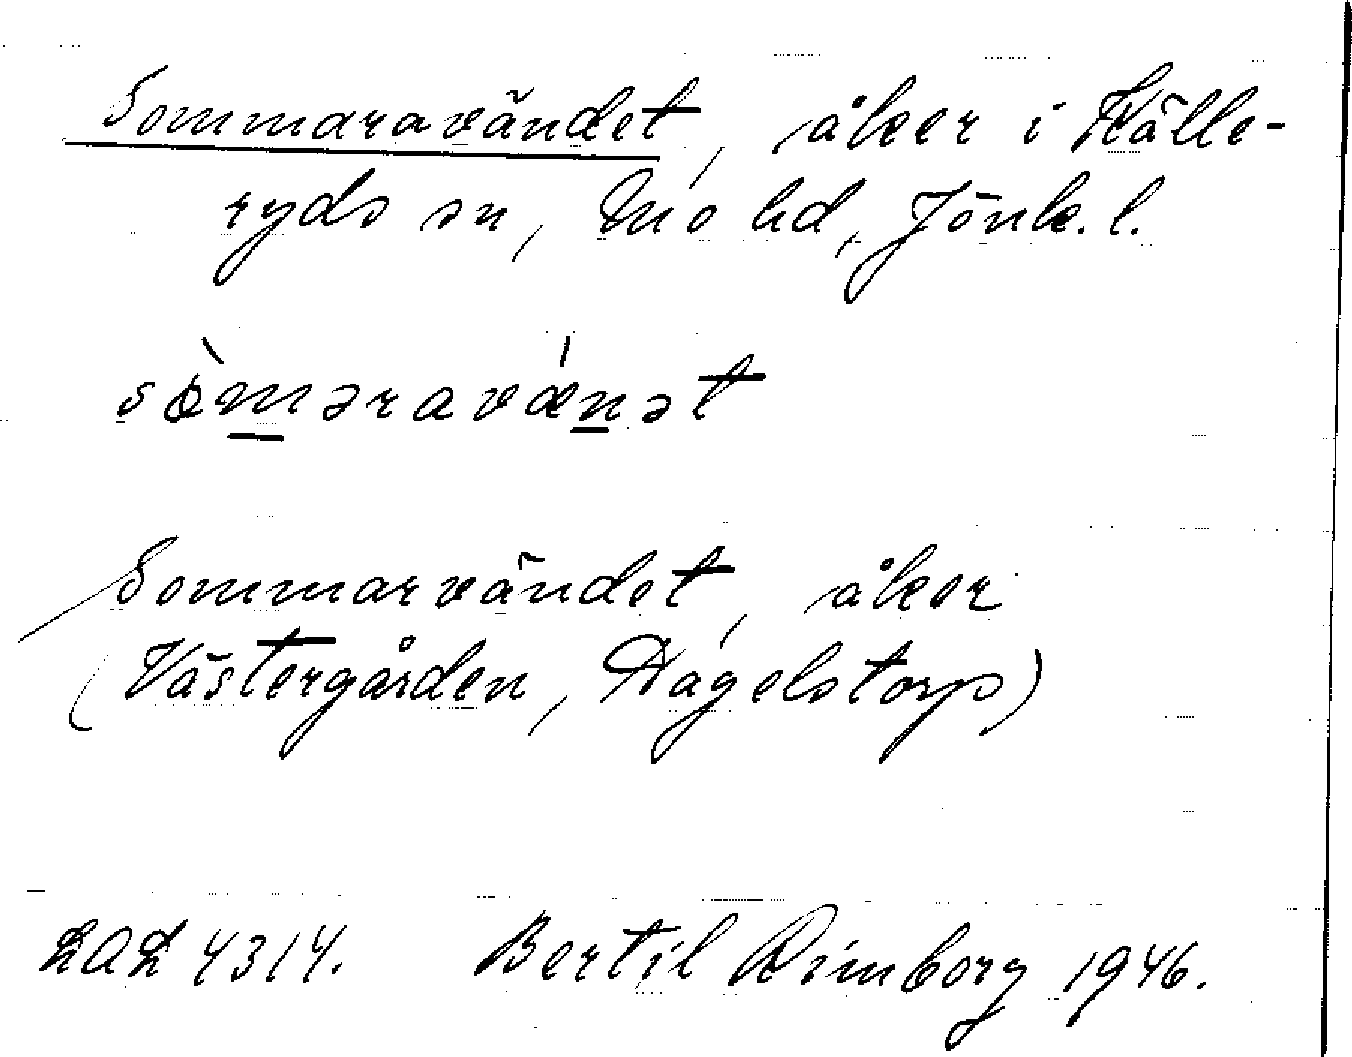 Sommaravändet, åker i Källe-
ryds sn, Mo hd, Jönk. l.
sòməravǽnət
Sommarvändet, åker
(Västergården, Hagelstorp)
LAL 4314. Bertil Rimborg 1946.